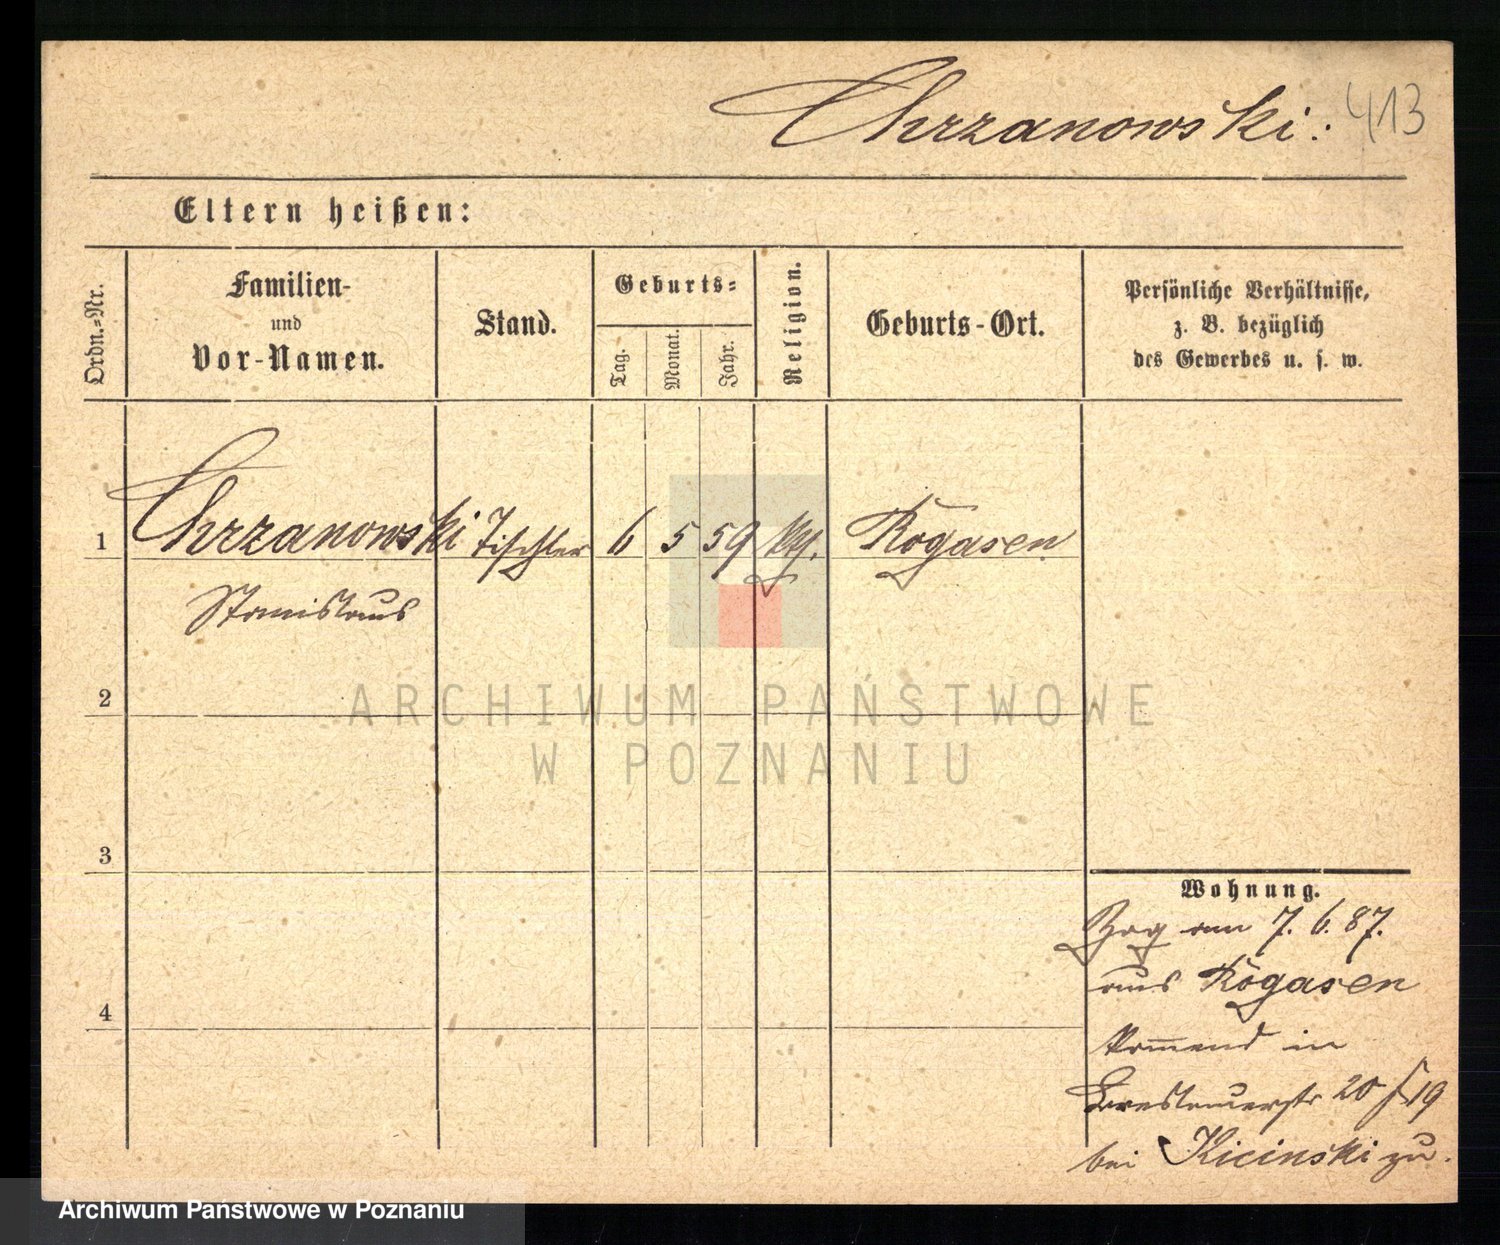 Chrzanowski: 413
Eltern heißen:
Ordn.=Nr.
Familien-
und
Vor-Namen.
Stand.
Geburts=
Tag.
Monat.
Jahr.
Religion.
Geburts-Ort.
Persönliche Verhältnisse,
z. B. bezüglich
des Gewerbes u. s. w.
1 Chrzanowski Tischler 6 5 59 Rogasen
Stanislaus
2
3
4
Wohnung.
Zog am 7. 6. 87.
aus Rogasen
kommend in
20
bei Kicinski zu.
ARCHIWUM PAŃSTWOWE
W POZNANIU
Archiwum Państwowe w Poznaniu